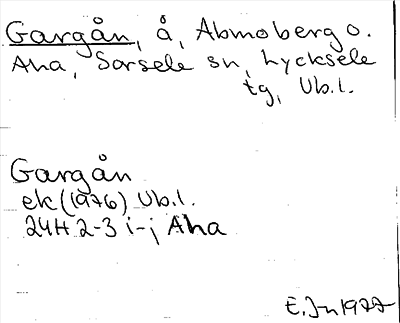 Gargån, å, Abmoberg o.
Aha, Sorsele sn, Lycksele
tg, Vb.l.
Gargån
ek (1976) Vb.l.
24H 2-3 i-j Aha
E.Jn 1977